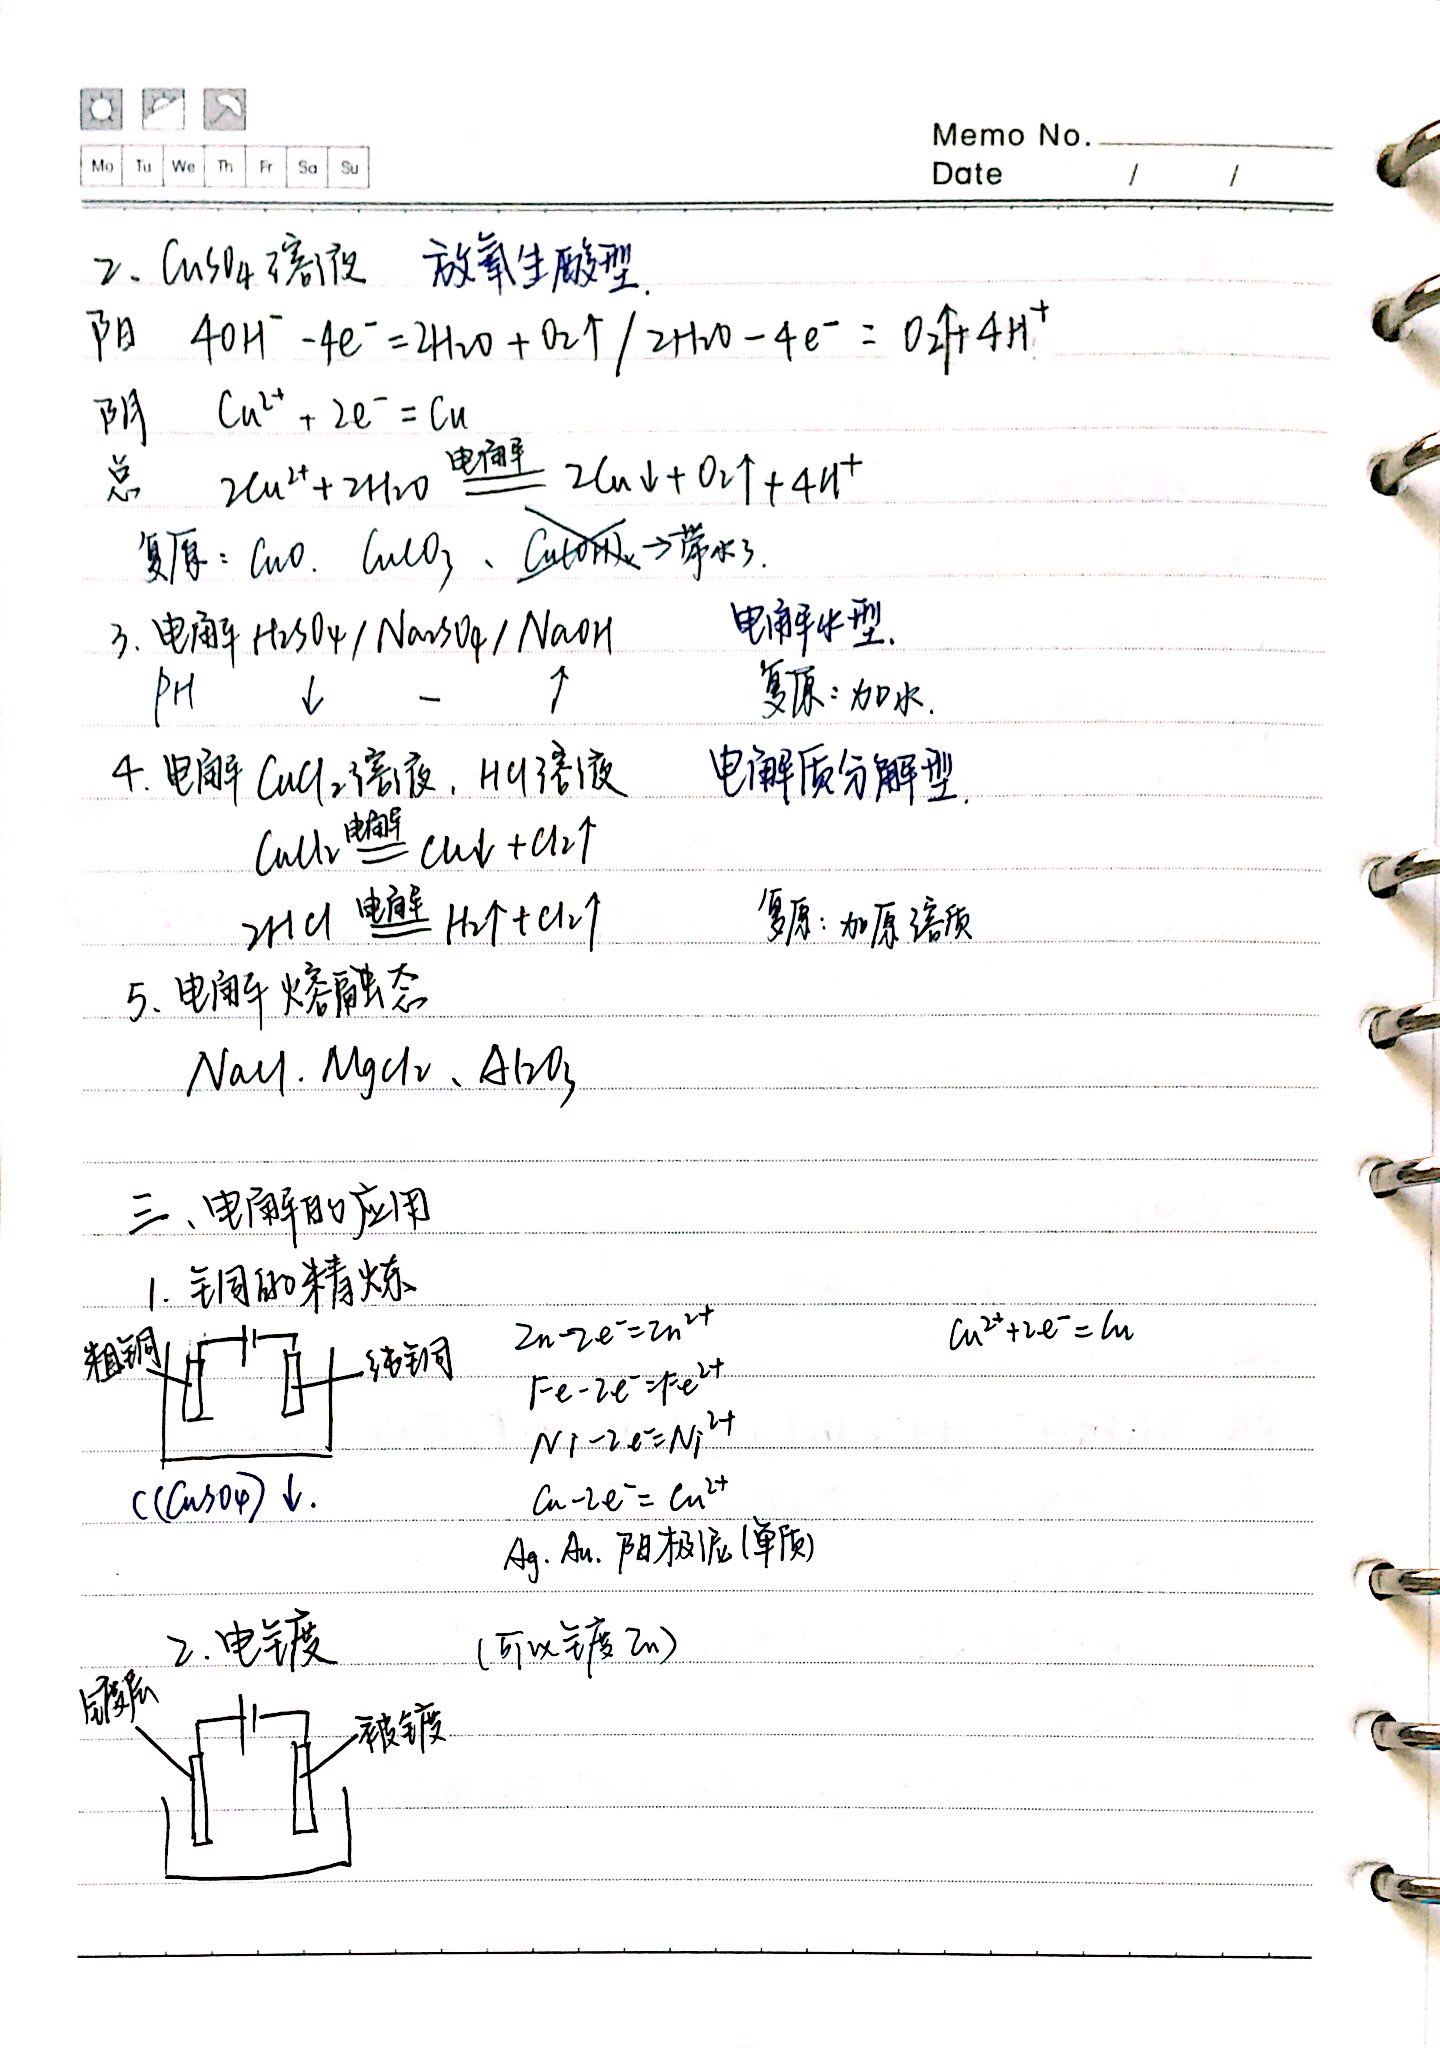 Mo Tu We Th Fr Sa Su
Memo No.
Date / /
2、CuSO4溶液 放氧生酸型.
阳 4OH⁻ -4e⁻ = 2H2O + O2↑ / 2H2O - 4e⁻ = O2↑+4H⁺
阴 Cu²⁺ + 2e⁻ = Cu
总 2Cu²⁺+2H2O 电解 2Cu↓+O2↑+4H⁺
复原: CuO. CuCO3、Cu(OH)2→带水了.
3. 电解 H2SO4/Na2SO4/NaOH 电解水型.
PH ↓ - ↑ 复原: 加水.
4. 电解 CuCl2溶液. HCl溶液 电解质分解型.
CuCl2 电解 Cu↓+Cl2↑
2HCl 电解 H2↑+Cl2↑ 复原: 加原溶质
5、电解熔融态
NaCl. MgCl2、Al2O3
三、电解的应用
1. 铜的精炼
粗铜 纯铜 Zn-2e⁻=Zn²⁺ Cu²⁺+2e⁻=Cu
Fe-2e⁻=Fe²⁺
Ni-2e⁻=Ni²⁺
C(CuSO4)↓. Cu-2e⁻=Cu²⁺
Ag. Au. 阳极泥(单质)
2. 电镀 (可以镀Zn)
镀层 被镀